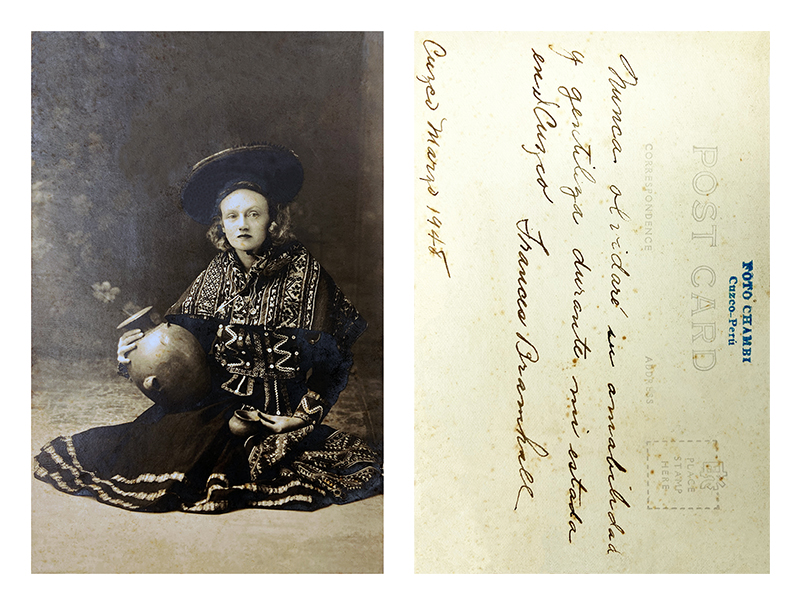 FOTO CHAMBI
Cuzco-Perú
POST CARD
CORRESPONDENCE
ADDRESS
PLACE
STAMP
HERE
Nunca olvidaré su amabilidad
y gentileza durante mi estada
en Cuzco Frances Bramhall
Cuzco Marzo 1945